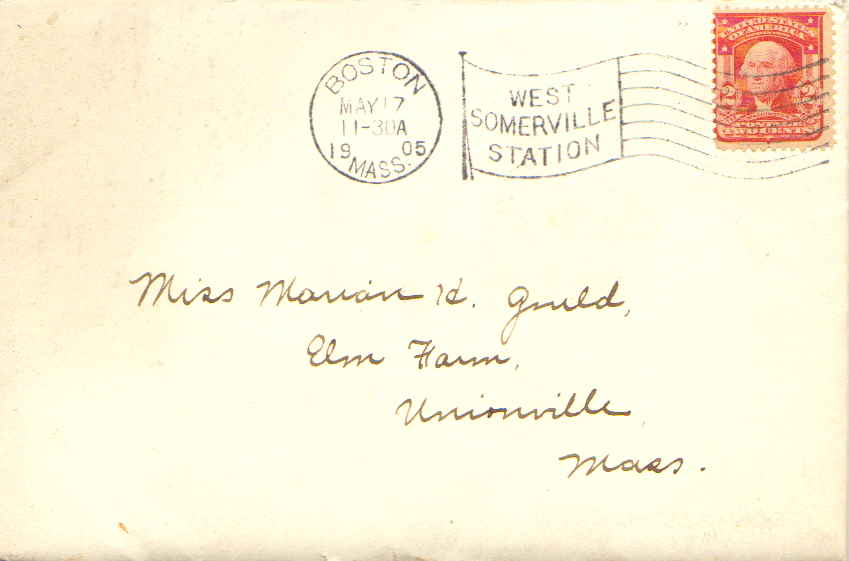 BOSTON
MAY 17
11-30A
19 05
MASS.
WEST
SOMERVILLE
STATION
UNITED STATES
OF AMERICA
2 2
POSTAGE
TWO CENTS
Miss Marian H. Guild,
Elm Farm,
Unionville,
Mass.